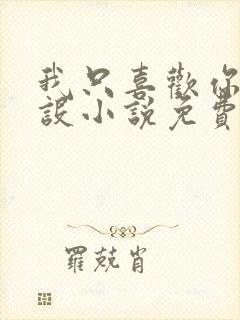 我只喜歡你
設小說免費
羅兢肖